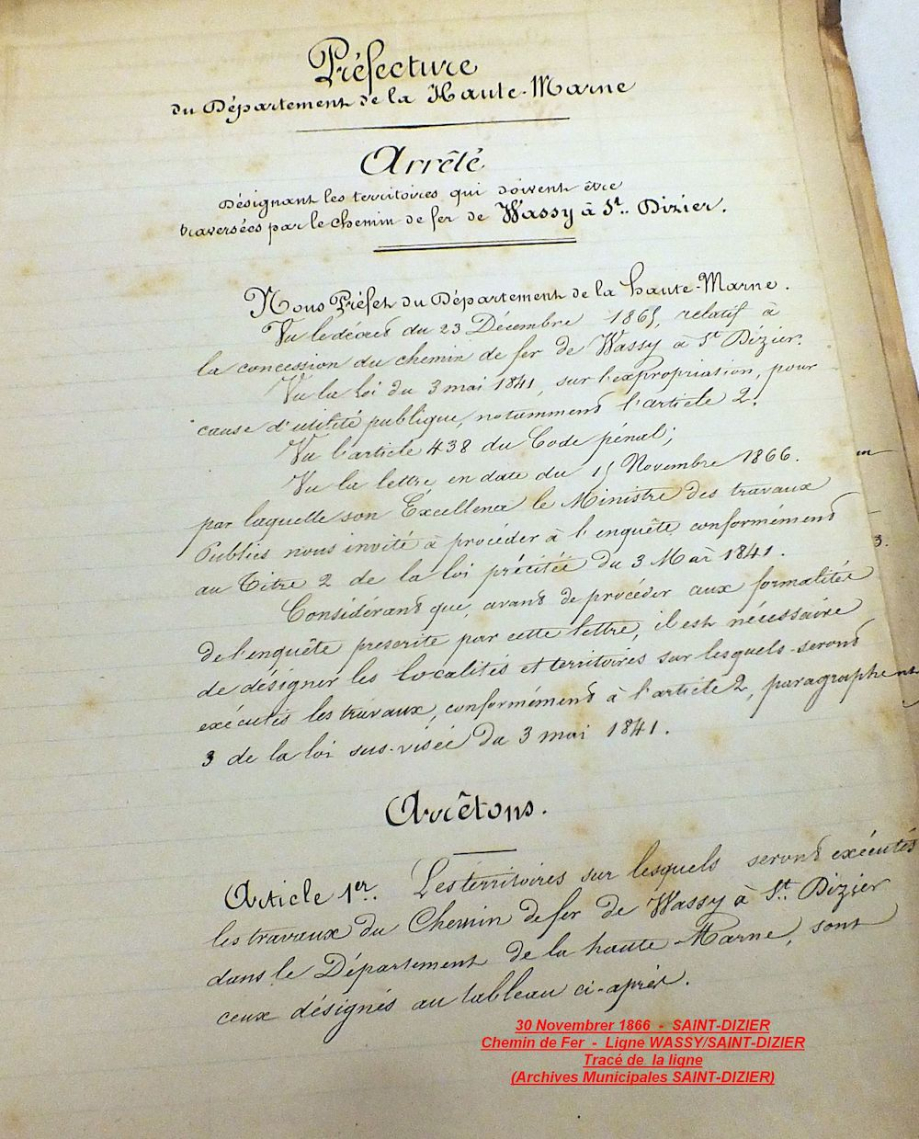 Préfecture
du Département de la Haute-Marne
Arrêté
Désignant les territoires qui doivent être
traversées par le chemin de fer de Wassy à St. Dizier.
Nous Préfet du Département de la haute-Marne.
Vu le décret du 23 Décembre 1865, relatif à
la concession du chemin de fer de Wassy à St Dizier.
Vu la loi du 3 mai 1841, sur l'expropriation, pour
cause d'utilité publique, notamment l'article 2.
Vu l'article 438 du Code pénal;
Vu la lettre en date du 15 Novembre 1866.
par laquelle son Excellence le Ministre des travaux
Publics nous invite à procéder à l'enquête conformément
au Titre 2 de la loi précitée du 3 Mai 1841.
Considérant que, avant de procéder aux formalités
de l'enquête prescrite par cette lettre, il est nécessaire
de désigner les localités et territoires sur lesquels seront
exécutés les travaux, conformément à l'article 2, paragraphe
3 de la loi sus-visée du 3 mai 1841.
Arrêtons.
Article 1er. Les territoires sur lesquels seront exécutés
les travaux du Chemin de fer de Wassy à St. Dizier
dans le Département de la haute Marne, sont
ceux désignés au tableau ci-après.
30 Novembrer 1866 - SAINT-DIZIER
Chemin de Fer - Ligne WASSY/SAINT-DIZIER
Tracé de la ligne
(Archives Municipales SAINT-DIZIER)